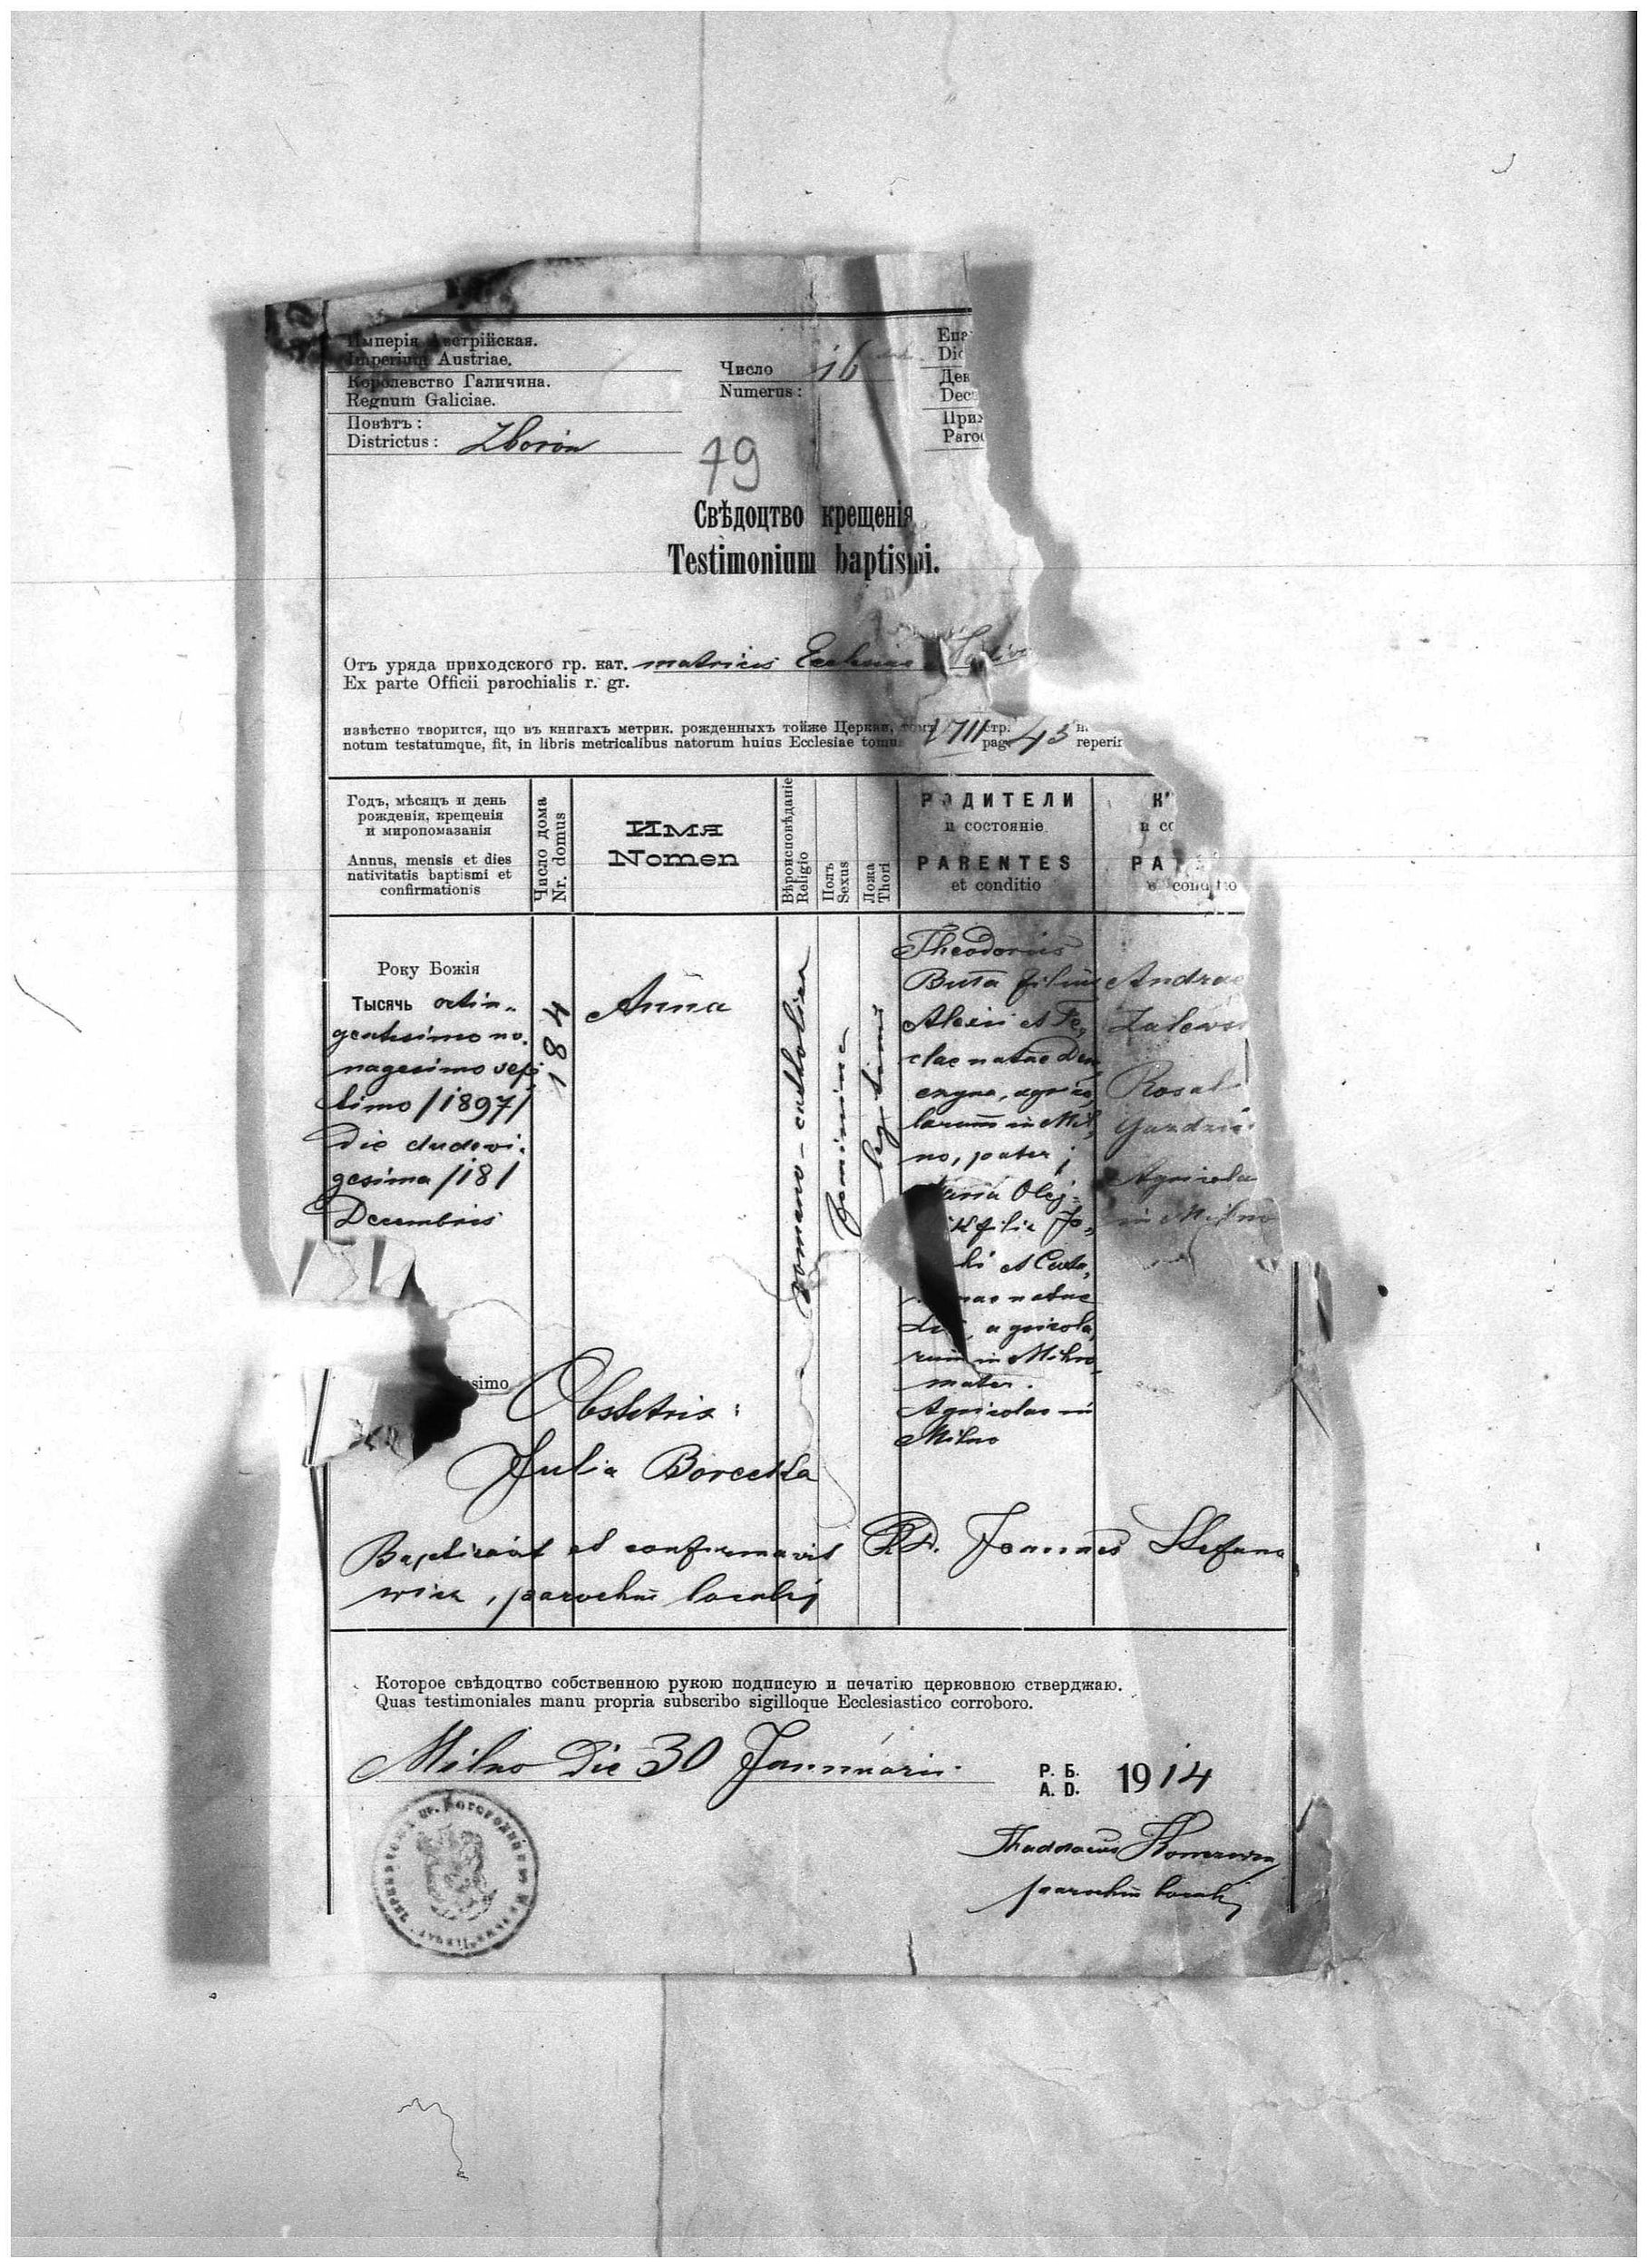 Имперія Австрійская.
Imperium Austriae.
Королевство Галичина.
Regnum Galiciae.
Повѣтъ:
Districtus: Zborów
Число 16
Numerus:
Епа
Dic
Дек
Dec
Прих
Paroc
79
Свѣдоцтво крещенія
Testimonium baptismi.
Отъ уряда приходского гр. кат. matricis Ecclesiae
Ex parte Officii parochialis r. gr.
извѣстно творится, що въ книгахъ метрик. рожденныхъ тойже Церкви, томъ VIII стр. 43 н.
notum testatumque, fit, in libris metricalibus natorum huius Ecclesiae tomus pag. reperir
Годъ, мѣсяцъ и день
рожденія, крещенія
и миропомазанія
Annus, mensis et dies
nativitatis baptismi et
confirmationis
Число дома
Nr. domus
Имя
Nomen
Вѣроисповѣданіе
Religio
Полъ
Sexus
Ложа
Thori
РОДИТЕЛИ
и состояніе
PARENTES
et conditio
К
и сс
PAT
conditio
Року Божія
Тысячь octin-
gentesimo no-
nagesimo sep
timo /1897/
die duodevi-
gesima /18/
Decembris
esimo
184
Anna
romano-catholica
Feminina
legitimi
Theodorus
Buta filius
Alexii et Te,
clae natae Dem,
czyna, agrico,
larum in Mil,
no, pater;
Olej-
filia Ja,
et Cata,
natae
agricola,
rum in Milno,
mater.
Agricolae in
Milno
Andrae
Zalews
Rosal
Gazdzi
Agricolae
in Milno
Obstetrix:
Julia Borecka
Baptizavit et confirmavit RD. Joannes Stefano
wicz, parochus localis
Которое свѣдоцтво собственною рукою подписую и печатію церковною стверджаю.
Quas testimoniales manu propria subscribo sigilloque Ecclesiastico corroboro.
Milno Die 30 Januarii.
Р. Б.
A. D. 1914
Thaddaeus
parochus localis